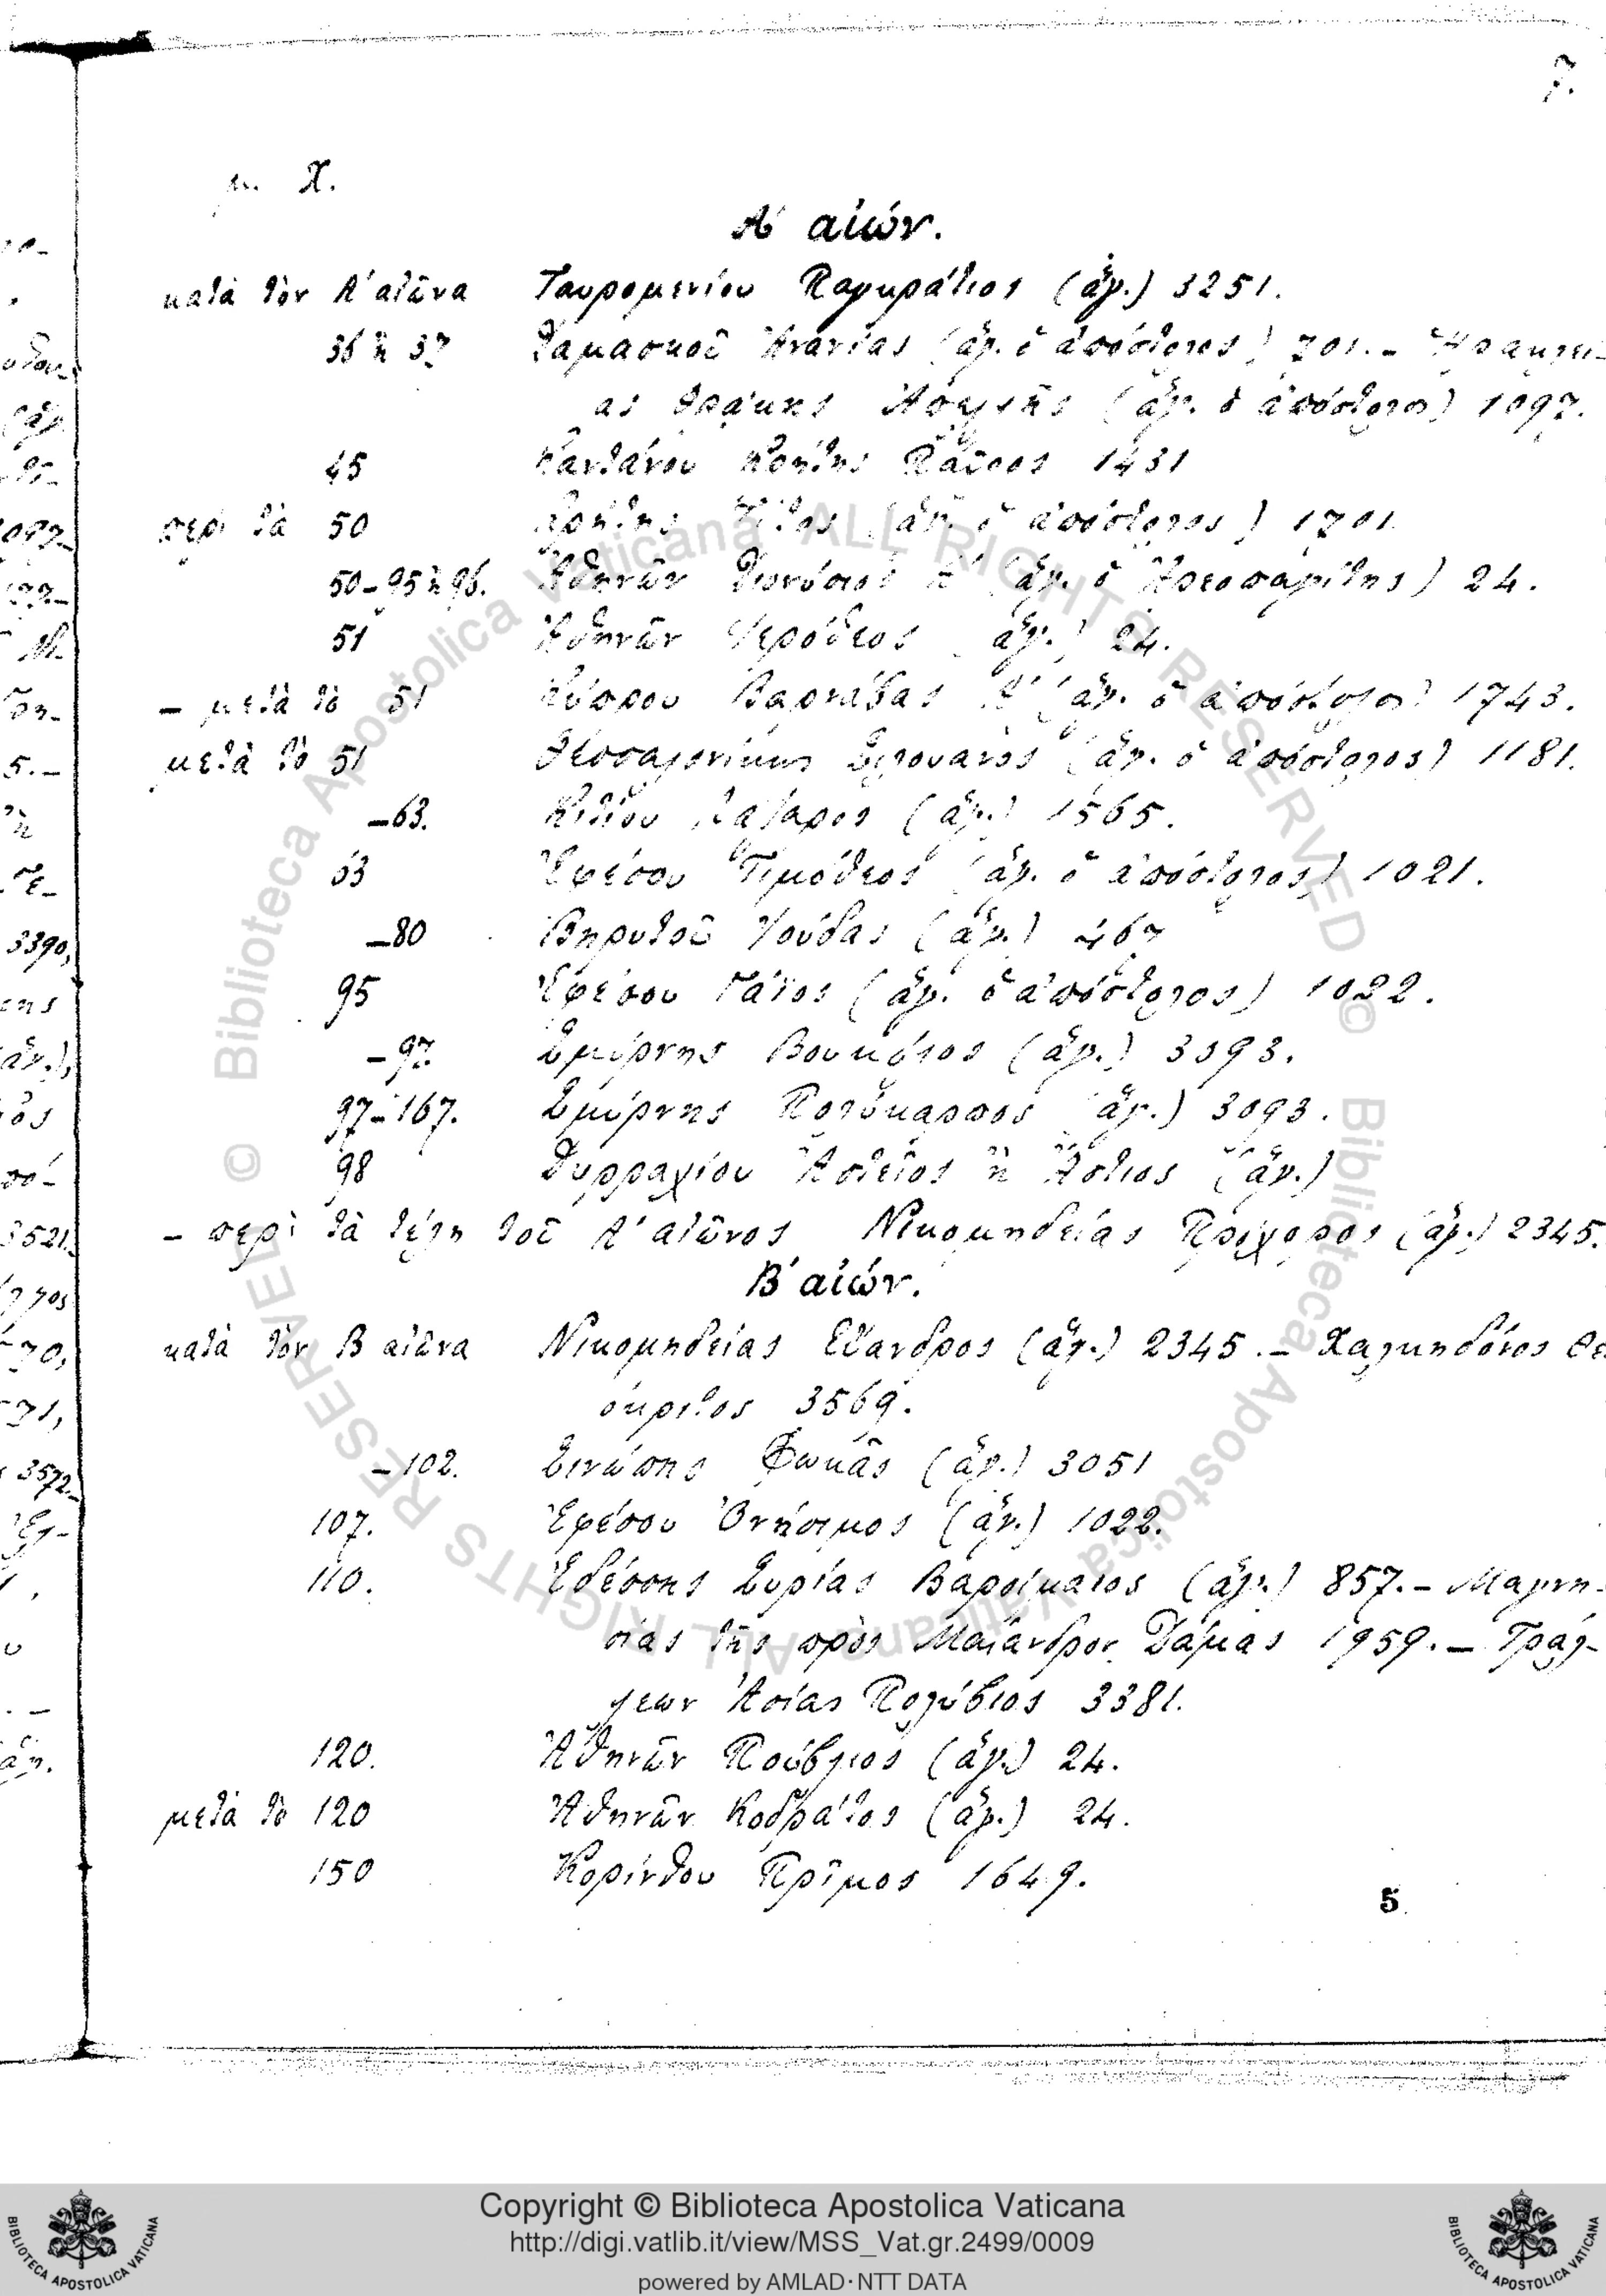 7.
μ. Χ.
Α΄ αἰών.
κατὰ τὸν Α΄ αἰῶνα Ταυρομενίου Παγκράτιος (ἅγ.) 3251.
36 ἢ 37 Δαμασκοῦ Ἀνανίας (ἅγ. ὁ ἀπόστολος) 701. – Ἡρακλεί-
ας Θράκης Ἀπελλῆς (ἅγ. ὁ ἀπόστολος) 1097.
45 Καντάνου Κρήτης 1431
περὶ τὰ 50 Κρήτης Τίτος (ἅγ. ὁ ἀπόστολος) 1701.
50–95 ἢ 96. Ἀθηνῶν Διονύσιος Α΄ (ἅγ. ὁ Ἀρεοπαγίτης) 24.
51 Ἀθηνῶν Ἱερόθεος (ἅγ.) 24.
– μετὰ τὸ 51 Κύπρου Βαρνάβας Α΄ (ἅγ. ὁ ἀπόστολος) 1743.
μετὰ τὸ 51 Θεσσαλονίκης Σιλουανὸς (ἅγ. ὁ ἀπόστολος) 1181.
–63. Κιτίου Λάζαρος (ἅγ.) 1565.
63 Ἐφέσου Τιμόθεος (ἅγ. ὁ ἀπόστολος) 1021.
–80 Βηρυτοῦ Ἰούδας (ἅγ.) 467
95 Ἐφέσου Γάϊος (ἅγ. ὁ ἀπόστολος) 1022.
–97. Σμύρνης Βουκόλος (ἅγ.) 3093.
97–167. Σμύρνης Πολύκαρπος (ἅγ.) 3093.
98 Δυρραχίου Ἀστεῖος ἢ Ἄστιος (ἅγ.)
– περὶ τὰ τέλη τοῦ Α΄ αἰῶνος Νικομηδείας Πρόχορος (ἅγ.) 2345.
Β΄ αἰών.
κατὰ τὸν Β αἰῶνα Νικομηδείας Εὔανδρος (ἅγ.) 2345. – Χαλκηδόνος Θε
όκριτος 3569.
–102. Σινώπης Φωκᾶς (ἅγ.) 3051
107. Ἐφέσου Ὀνήσιμος (ἅγ.) 1022.
110. Ἐδέσσης Συρίας Βαρσιμαῖος (ἅγ.) 857. – Μαγνη-
σίας τῆς πρὸς Μαίανδρον Δάμας 1959. – Τράλ-
λεων Ἀσίας Πολύβιος 3381.
120. Ἀθηνῶν Πούβλιος (ἅγ.) 24.
μετὰ τὸ 120 Ἀθηνῶν Κοδρᾶτος (ἅγ.) 24.
150 Κορίνθου Πρῖμος 1649.
5
© Biblioteca Apostolica Vaticana ALL RIGHTS RESERVED
© Biblioteca Apostolica Vaticana ALL RIGHTS RESERVED
Copyright © Biblioteca Apostolica Vaticana
http://digi.vatlib.it/view/MSS_Vat.gr.2499/0009
powered by AMLAD·NTT DATA
BIBLIOTECA APOSTOLICA VATICANA
BIBLIOTECA APOSTOLICA VATICANA